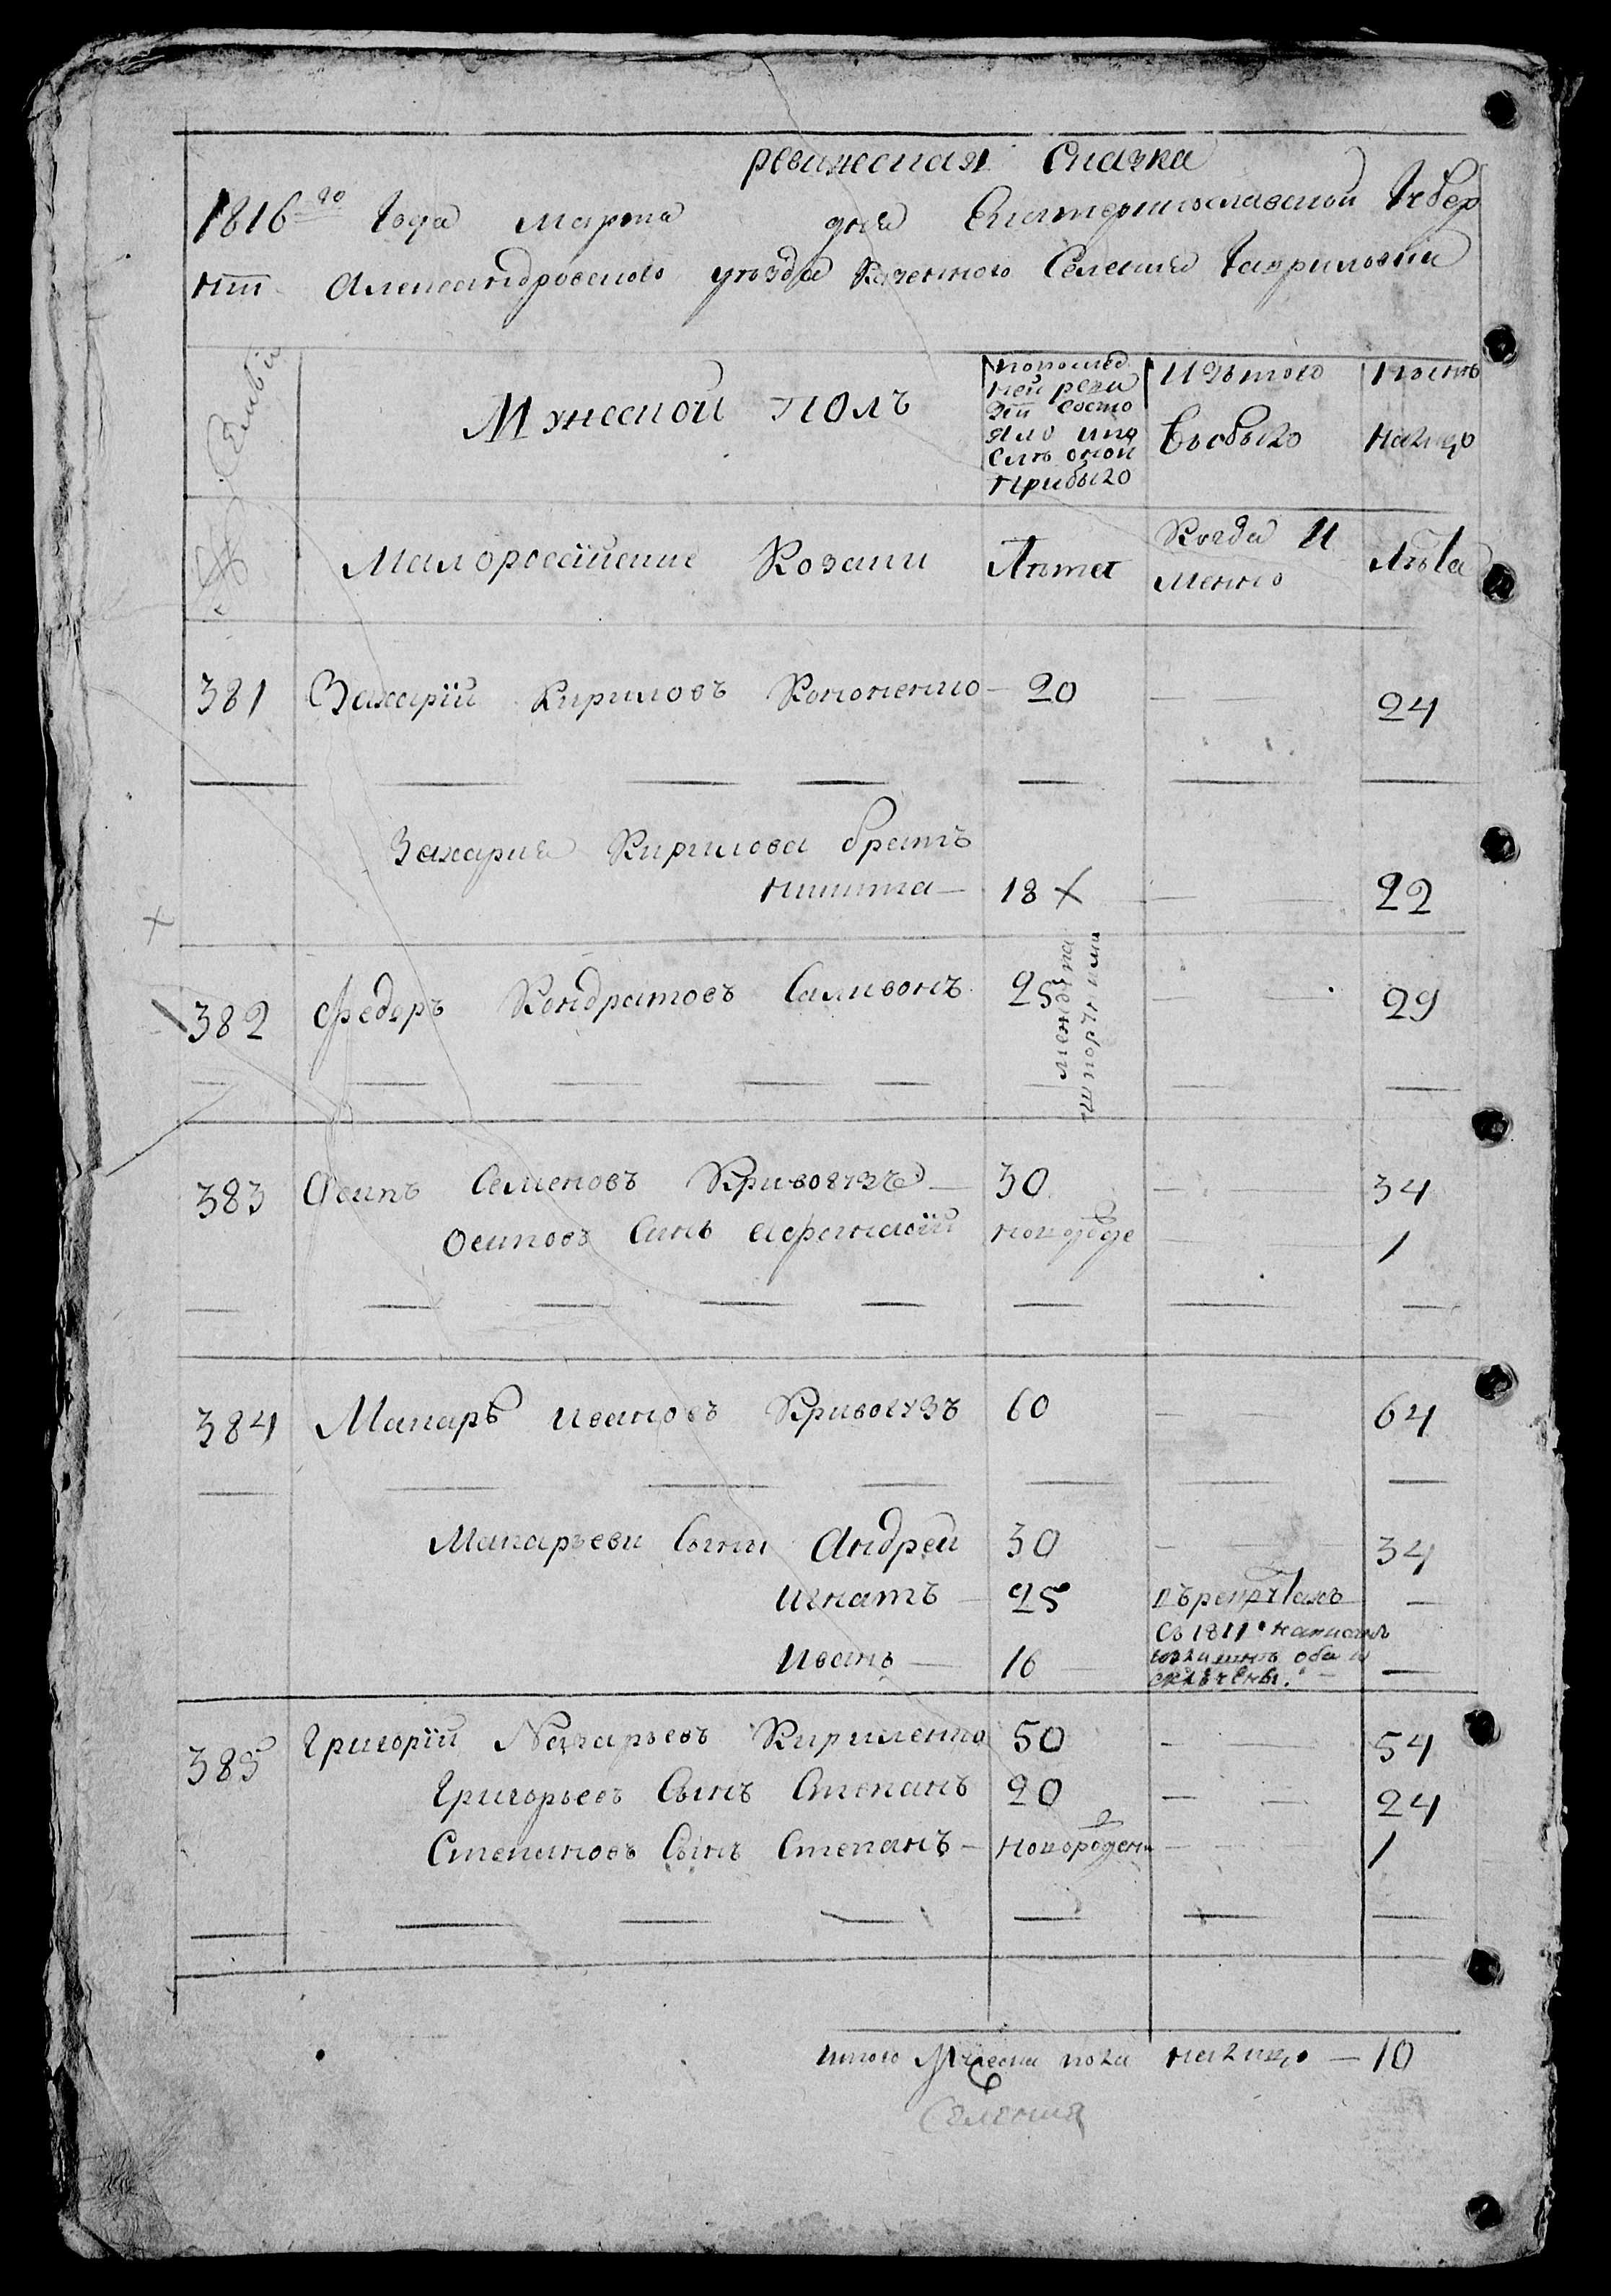 ревижская Сказка
1816го Года Марта дня Екатеринославской Губер
нии Александровского уезда Казенного Селения Гаврильовки
Семьи
Мужеской полъ
попослед
ней реви
зіи состо
яло ипо
слѣ оной
прибыло
Изътого
Выбыло
Ныне
налицо
№
Малороссійские Козаки
Лѣта
Когда И
Менно
Лѣта
381 Захарій Кириловъ Кононенко 20 24
Захария Кирилова братъ
никита 18 22
382 Федоръ Кондратовъ Саливонъ 25 29
383 Осипъ Семеновъ Кривогузъ 30 34
Осиповъ Синъ Афанасій новорожде 1
384 Макаръ Ивановъ Кривогузъ 60 64
Макарьеви Сыни Андрей 30 34
Игнатъ 25 въ рекрутахъ
Иванъ 16
Съ 1811
385 Григорій Назарьевъ Кириленко 50 54
Григорьевъ Сынъ Степанъ 20 24
Степановъ Сынъ Степанъ новорожден 1
итого Мужеска пола налицо 10
Селения